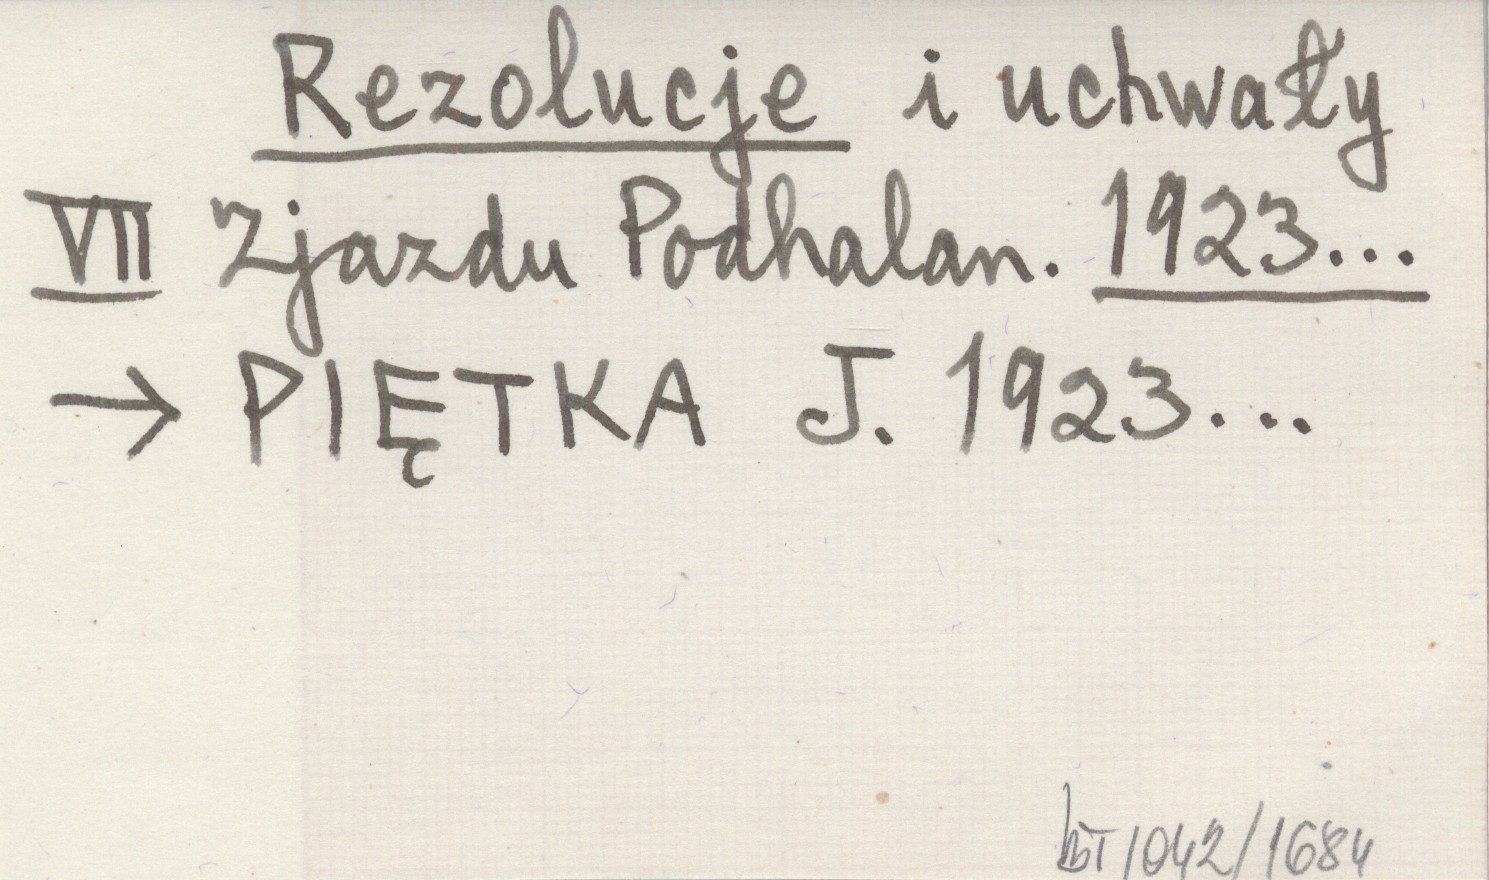 Rezolucje i uchwały
VII Zjazdu Podhalan. 1923...
→ PIĘTKA J. 1923...
1042/1684